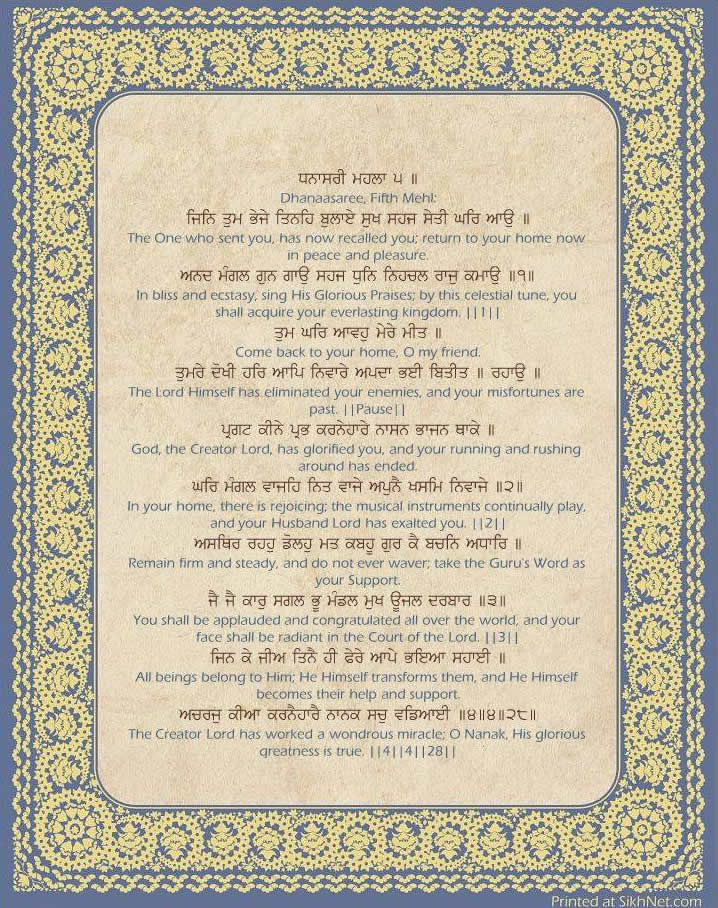 ਧਨਾਸਰੀ ਮਹਲਾ ੫ ॥
Dhanaasaree, Fifth Mehl:
ਜਿਨਿ ਤੁਮ ਭੇਜੇ ਤਿਨਹਿ ਬੁਲਾਏ ਸੁਖ ਸਹਜ ਸੇਤੀ ਘਰਿ ਆਉ ॥
The One who sent you, has now recalled you; return to your home now
in peace and pleasure.
ਅਨਦ ਮੰਗਲ ਗੁਨ ਗਾਉ ਸਹਜ ਧੁਨਿ ਨਿਹਚਲ ਰਾਜੁ ਕਮਾਉ ॥੧॥
In bliss and ecstasy, sing His Glorious Praises; by this celestial tune, you
shall acquire your everlasting kingdom. ||1||
ਤੁਮ ਘਰਿ ਆਵਹੁ ਮੇਰੇ ਮੀਤ ॥
Come back to your home, O my friend.
ਤੁਮਰੇ ਦੋਖੀ ਹਰਿ ਆਪਿ ਨਿਵਾਰੇ ਅਪਦਾ ਭਈ ਬਿਤੀਤ ॥ ਰਹਾਉ ॥
The Lord Himself has eliminated your enemies, and your misfortunes are
past. ||Pause||
ਪ੍ਰਗਟ ਕੀਨੇ ਪ੍ਰਭ ਕਰਨੇਹਾਰੇ ਨਾਸਨ ਭਾਜਨ ਥਾਕੇ ॥
God, the Creator Lord, has glorified you, and your running and rushing
around has ended.
ਘਰਿ ਮੰਗਲ ਵਾਜਹਿ ਨਿਤ ਵਾਜੇ ਅਪੁਨੈ ਖਸਮਿ ਨਿਵਾਜੇ ॥੨॥
In your home, there is rejoicing; the musical instruments continually play,
and your Husband Lord has exalted you. ||2||
ਅਸਥਿਰ ਰਹਹੁ ਡੋਲਹੁ ਮਤ ਕਬਹੂ ਗੁਰ ਕੈ ਬਚਨਿ ਅਧਾਰਿ ॥
Remain firm and steady, and do not ever waver; take the Guru's Word as
your Support.
ਜੈ ਜੈ ਕਾਰੁ ਸਗਲ ਭੂ ਮੰਡਲ ਮੁਖ ਊਜਲ ਦਰਬਾਰ ॥੩॥
You shall be applauded and congratulated all over the world, and your
face shall be radiant in the Court of the Lord. ||3||
ਜਿਨ ਕੇ ਜੀਅ ਤਿਨੈ ਹੀ ਫੇਰੇ ਆਪੇ ਭਇਆ ਸਹਾਈ ॥
All beings belong to Him; He Himself transforms them, and He Himself
becomes their help and support.
ਅਚਰਜੁ ਕੀਆ ਕਰਨੈਹਾਰੈ ਨਾਨਕ ਸਚੁ ਵਡਿਆਈ ॥੪॥੪॥੨੮॥
The Creator Lord has worked a wondrous miracle; O Nanak, His glorious
greatness is true. ||4||4||28||
Printed at SikhNet.com